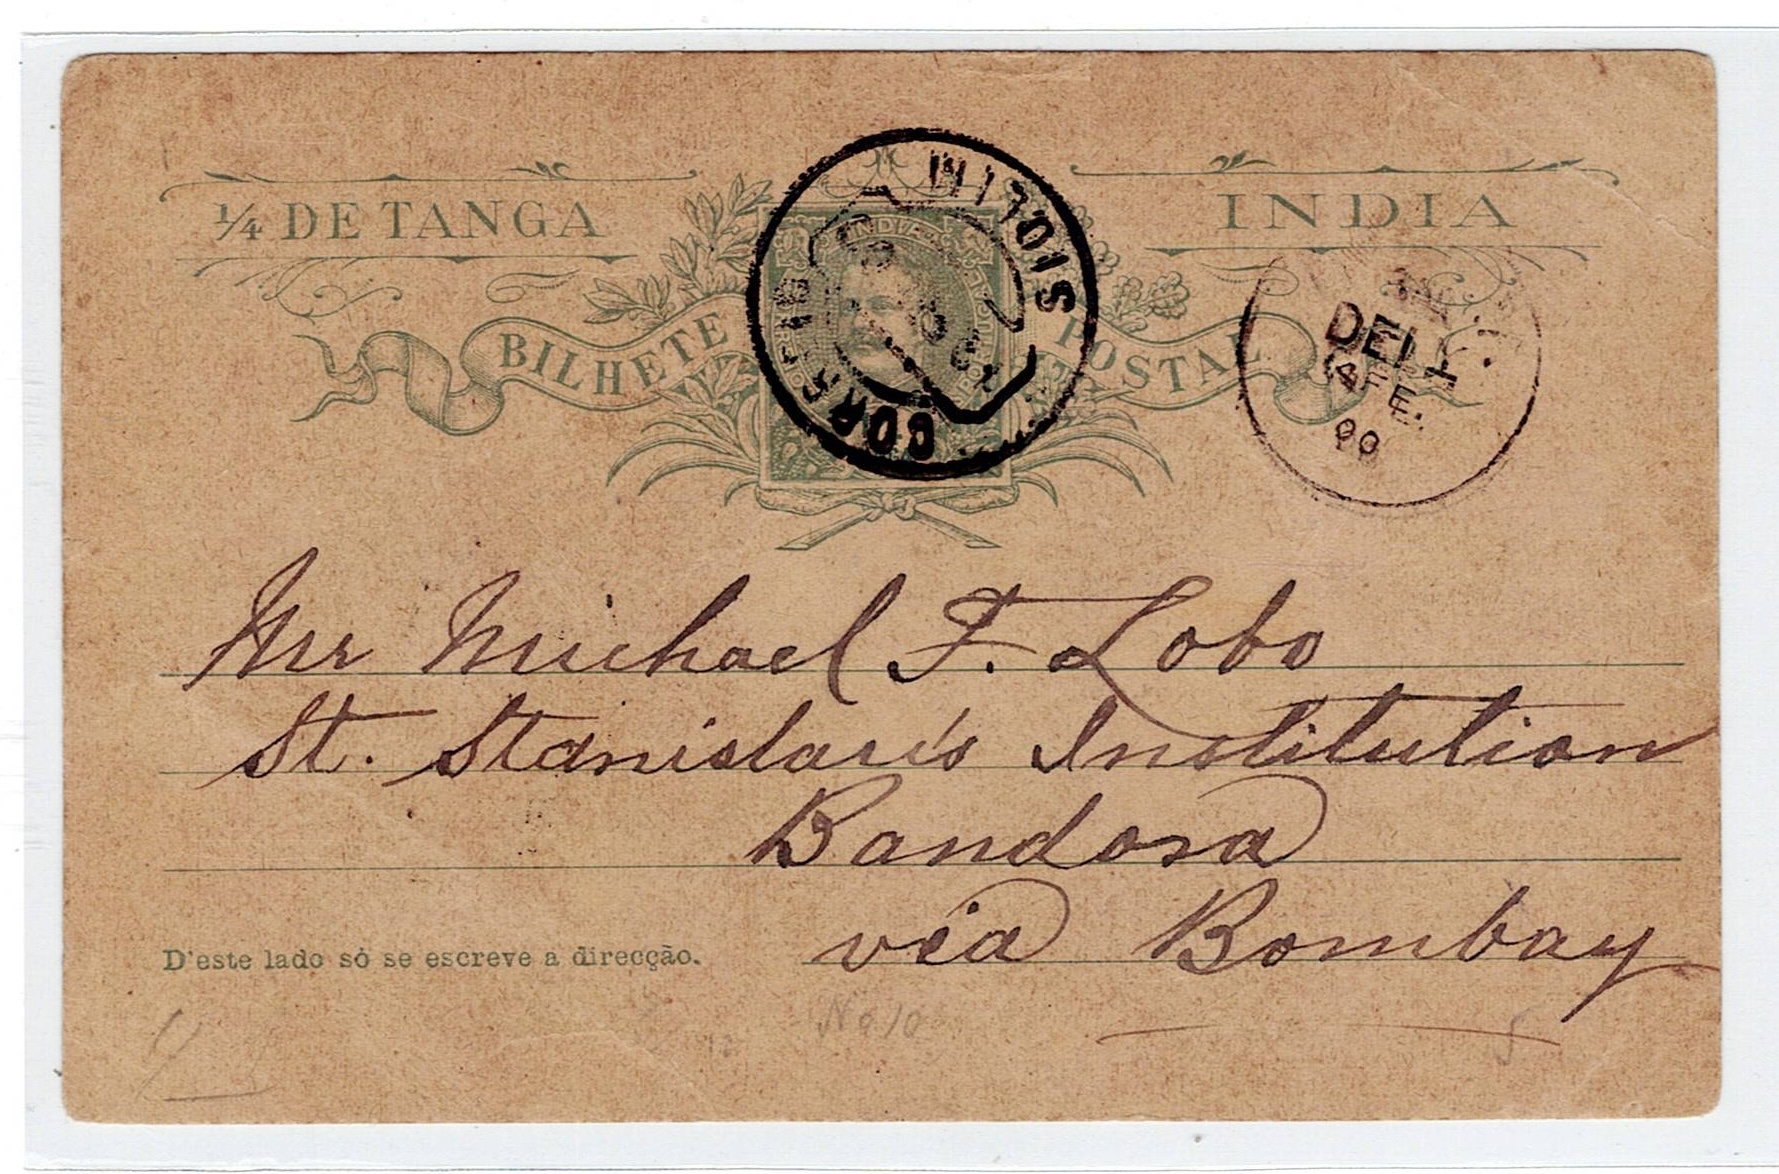 1/4 DE TANGA
INDIA
BILHETE POSTAL
INDIA
CORREIO
SIOLIM
DEL.
4 FE.
00
Mr Michael F. Lobo
St. Stanislaus's Institution
Bandora
via Bombay
D'este lado só se escreve a direcção.
No 10
5